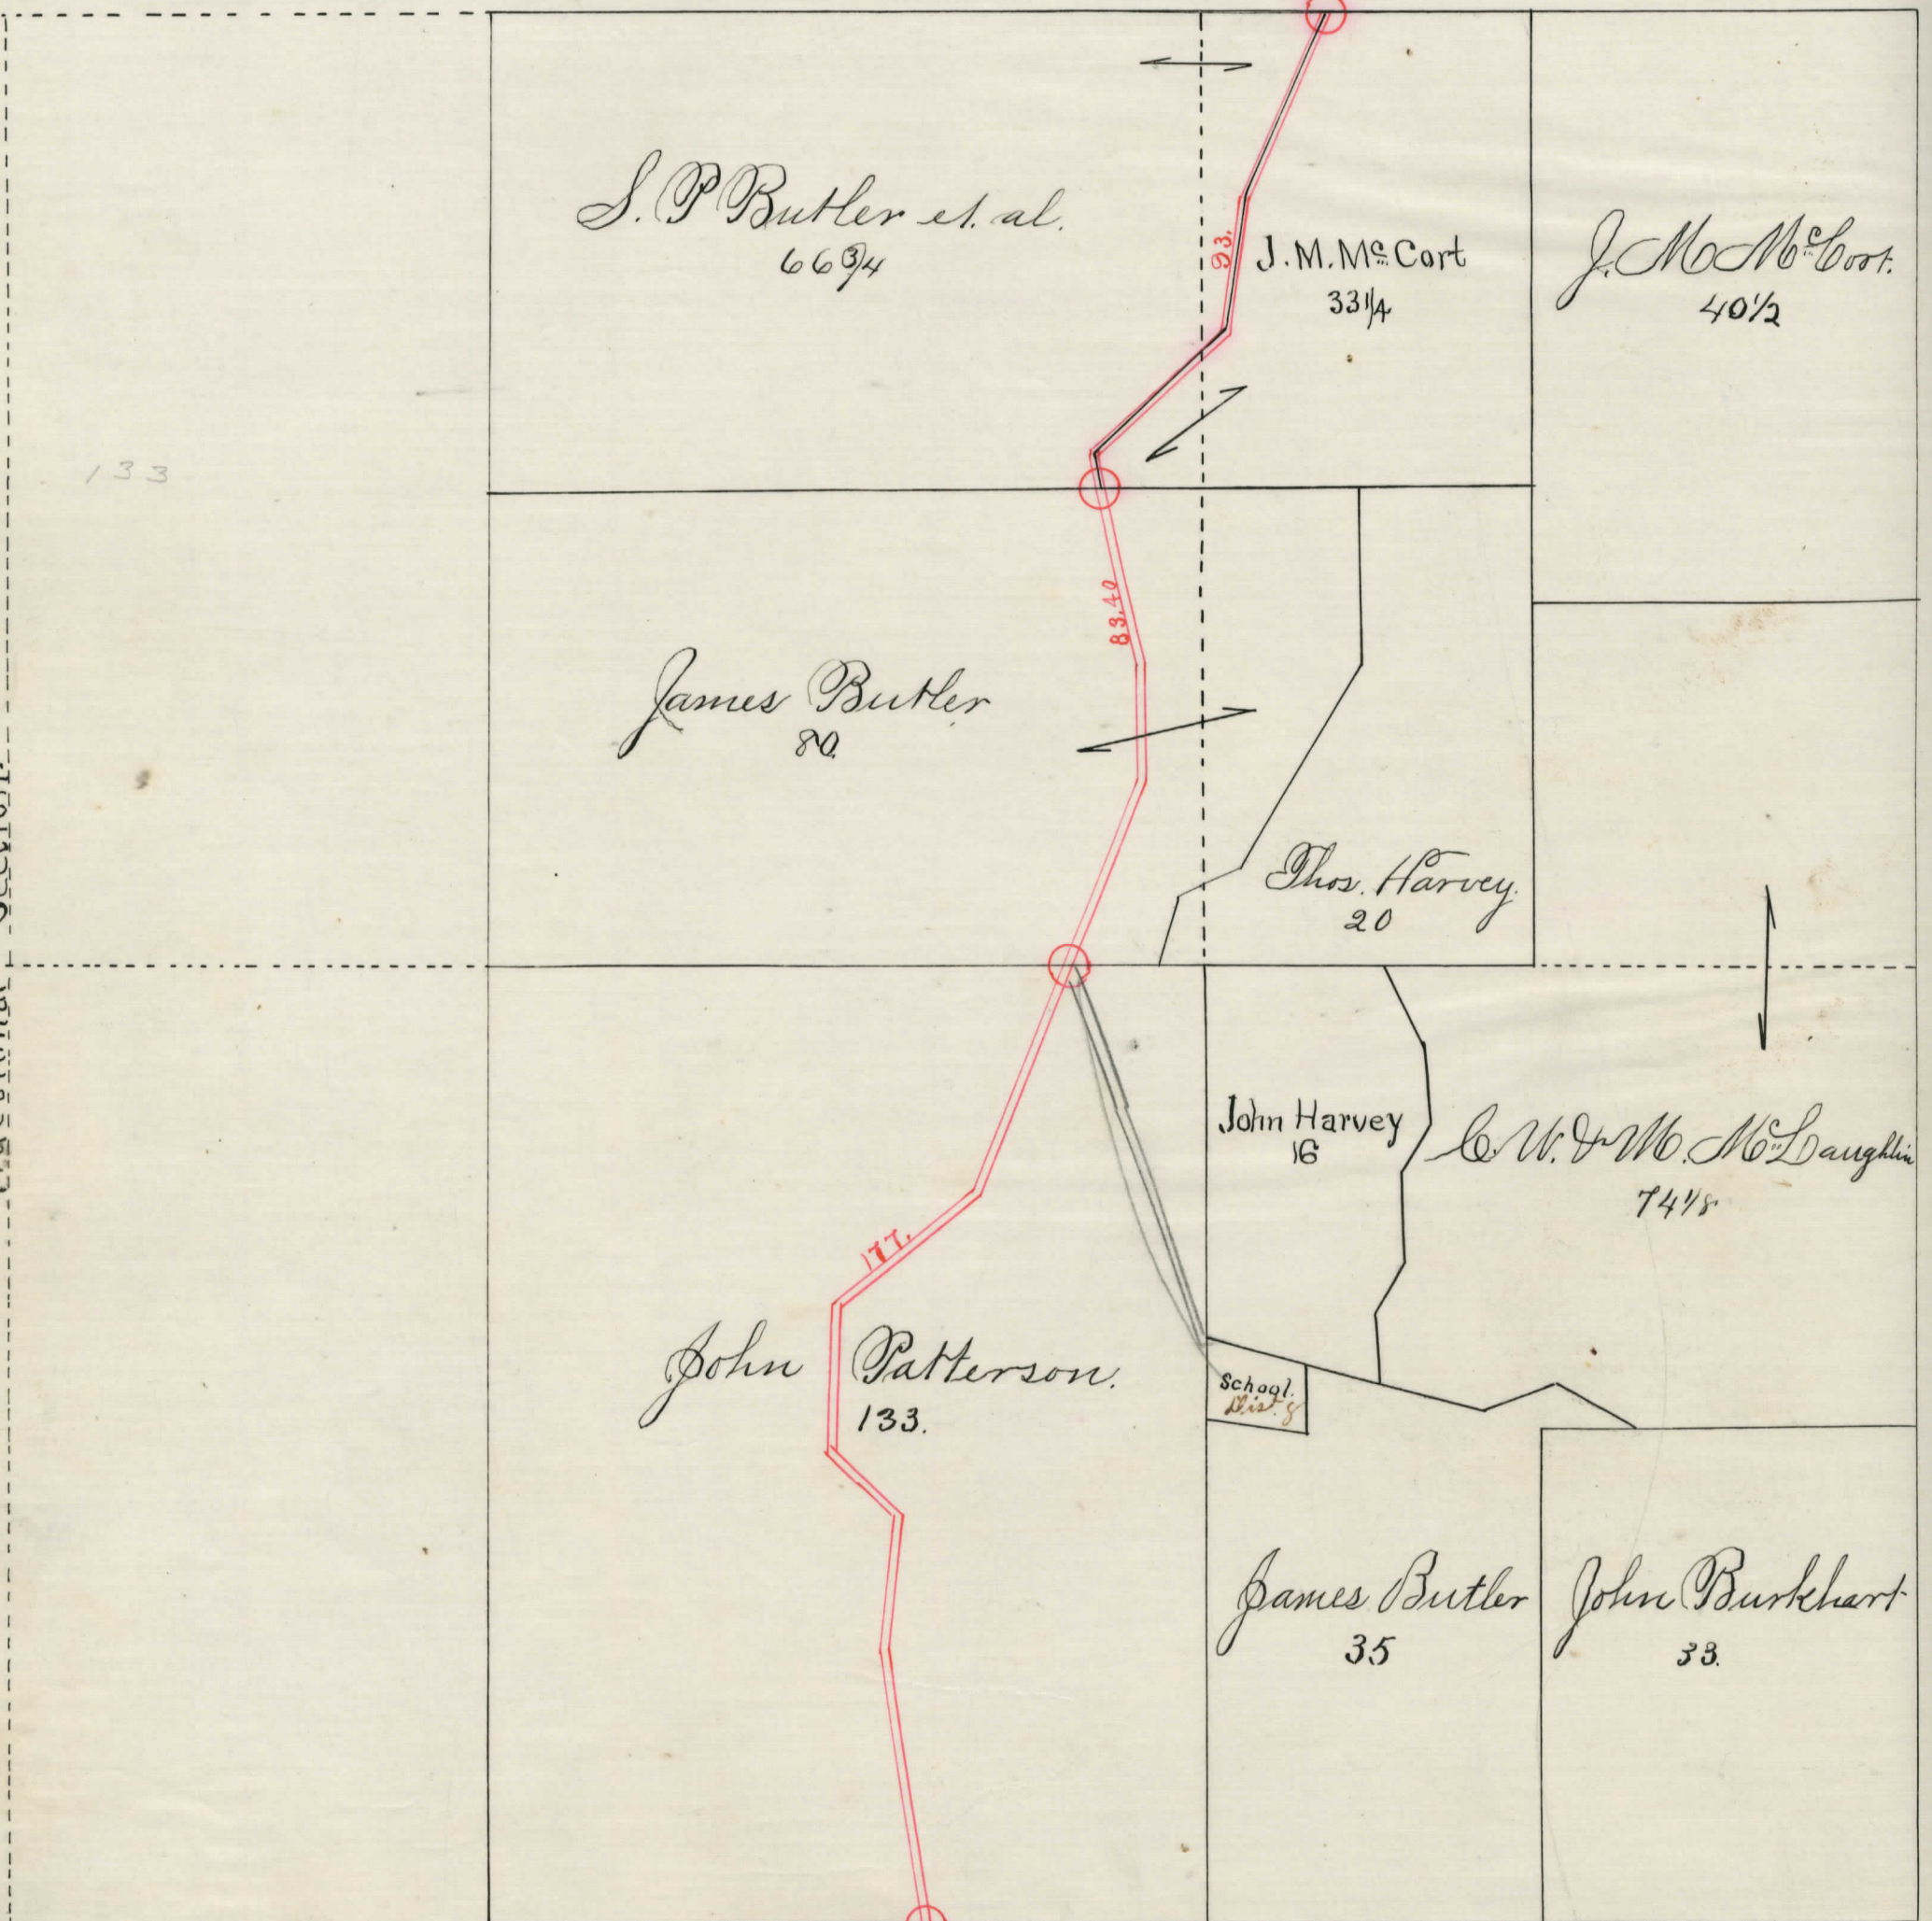 S. P Butler et. al.
66 3/4
93.
J. M. Mc Cort
33 1/4
J. M Mc Cort.
40 1/2
133
83.40
James Butler
80.
Thos. Harvey.
20
John Harvey
16
C. W. & M. Mc Laughlin
74 1/8
177.
John Patterson.
133.
School.
Dist. 8
James Butler
35
John Burkhart
33.